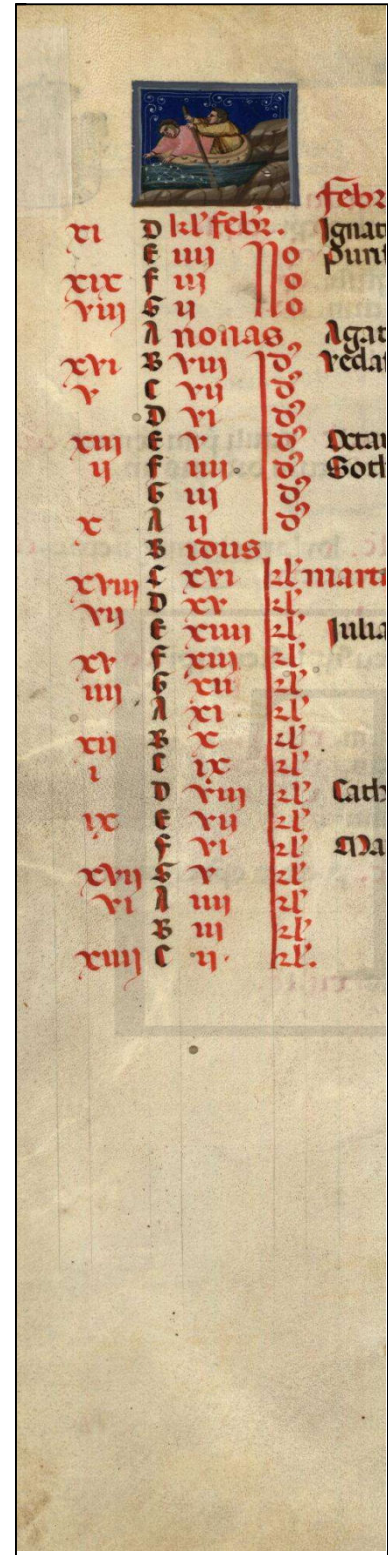 febr
xi D kl' febr. Ignat
E iiij No Puri
xix f iij No
viij G ij No
A nonas Agat
xvi B viij Id9 Veda
v C vij Id9
D vi Id9
xiij E v Id9 Octau
ij f iiij Id9 Scol
G iij Id9
x A ij Id9
B idus
xviij C xvi kl' marti
vij D xv kl'
E xiiij kl' Julia
xv f xiij kl'
iiij G xij kl'
A xi kl'
xij B x kl'
i C ix kl'
D viij kl' Cath
ix E vij kl'
f vi kl' Ma
xvij G v kl'
vi A iiij kl'
B iij kl'
xiiij C ij. kl'.